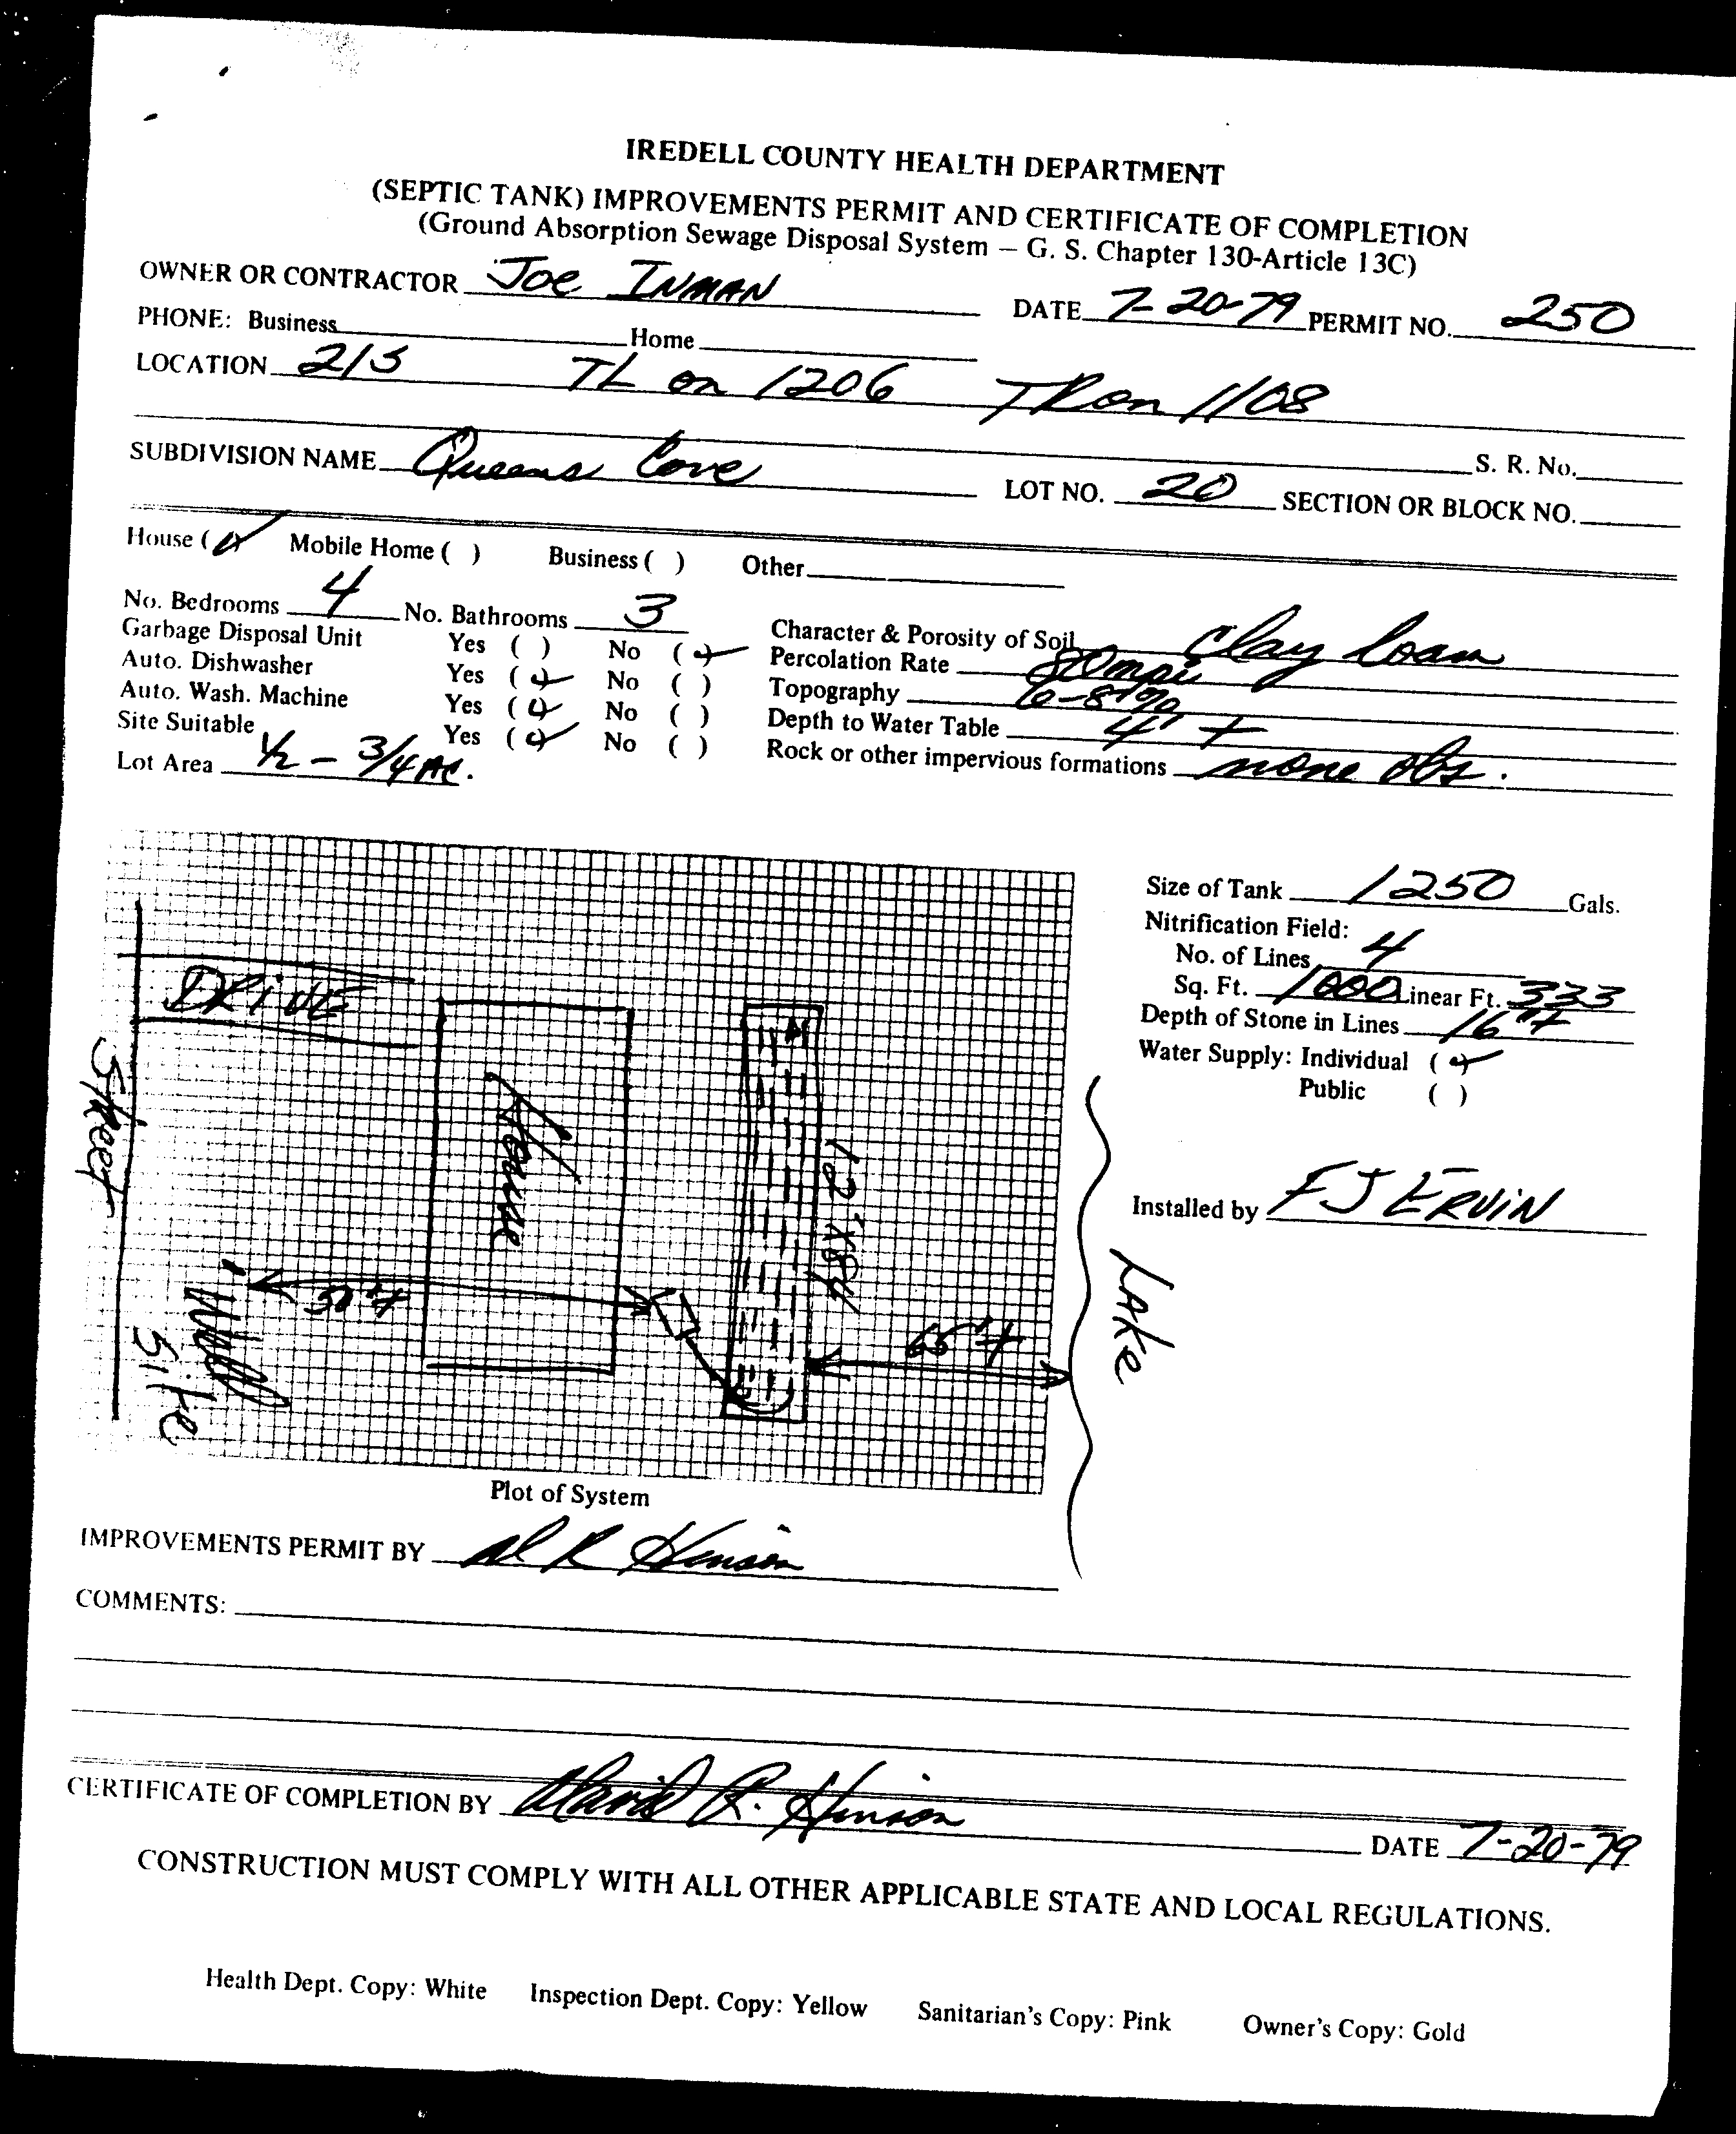 IREDELL COUNTY HEALTH DEPARTMENT
(SEPTIC TANK) IMPROVEMENTS PERMIT AND CERTIFICATE OF COMPLETION
(Ground Absorption Sewage Disposal System — G. S. Chapter 130-Article 13C)
OWNER OR CONTRACTOR Joe INMAN DATE 7-20-79 PERMIT NO. 250
PHONE: Business Home
LOCATION 21S TL on 1206 TR on 1108
S. R. No.
SUBDIVISION NAME Queens Cove LOT NO. 20 SECTION OR BLOCK NO.
House (✓) Mobile Home ( ) Business ( ) Other
No. Bedrooms 4 No. Bathrooms 3
Garbage Disposal Unit Yes ( ) No (✓)
Auto. Dishwasher Yes (✓) No ( )
Auto. Wash. Machine Yes (✓) No ( )
Site Suitable Yes (✓) No ( )
Lot Area 1/2 - 3/4 AC.
Character & Porosity of Soil Clay Loam
Percolation Rate mpi
Topography 6-8%
Depth to Water Table 4' +
Rock or other impervious formations none obs.
Size of Tank 1250 Gals.
Nitrification Field:
No. of Lines 4
Sq. Ft. 1000 Linear Ft. 333
Depth of Stone in Lines 16"+
Water Supply: Individual (✓)
Public ( )
Installed by FJ ERVIN
DRIVE
Street
House
12'X84'
50'+
65'+
Well
Site
LAKe
Plot of System
IMPROVEMENTS PERMIT BY R Hinson
COMMENTS:
CERTIFICATE OF COMPLETION BY David R. Hinson
DATE 7-20-79
CONSTRUCTION MUST COMPLY WITH ALL OTHER APPLICABLE STATE AND LOCAL REGULATIONS.
Health Dept. Copy: White Inspection Dept. Copy: Yellow Sanitarian's Copy: Pink Owner's Copy: Gold